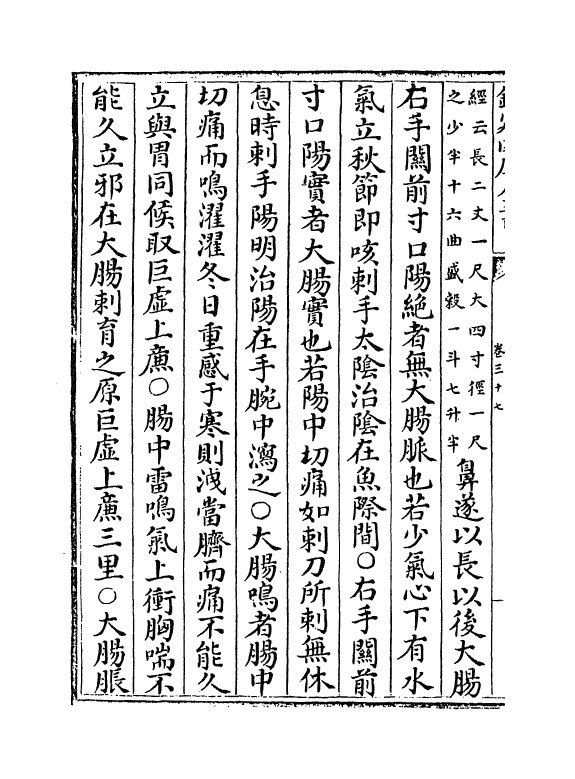 卷三十七
經云長二丈一尺大四寸徑一尺
之少半十六曲盛穀一斗七升半
鼻遂以長以後大腸
右手關前寸口陽絶者無大腸脈也若少氣心下有水
氣立秋節即咳刺手太陰治陰在魚際間○右手關前
寸口陽實者大腸實也若陽中切痛如刺刀所刺無休
息時刺手陽明治陽在手腕中瀉之○大腸鳴者腸中
切痛而鳴濯濯冬日重感于寒則洩當臍而痛不能久
立與胃同候取巨虛上亷○腸中雷鳴氣上衝胸喘不
能久立邪在大腸刺育之原巨虛上亷三里○大腸脹